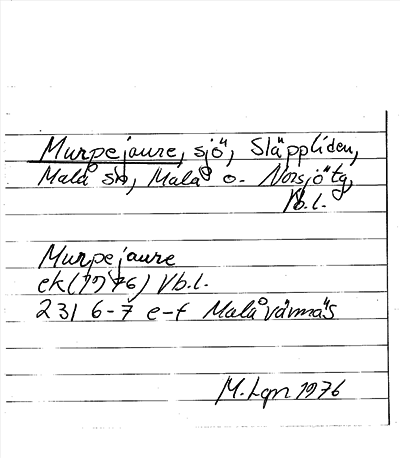 Murpejaure, sjö, Släppliden,
Malå sn, Malå o. Norsjö tg,
Vb.l.
Murpejaure
ek (1976) Vb.l.
23I 6-7 e-f Malåvännäs
M. Lqn 1976